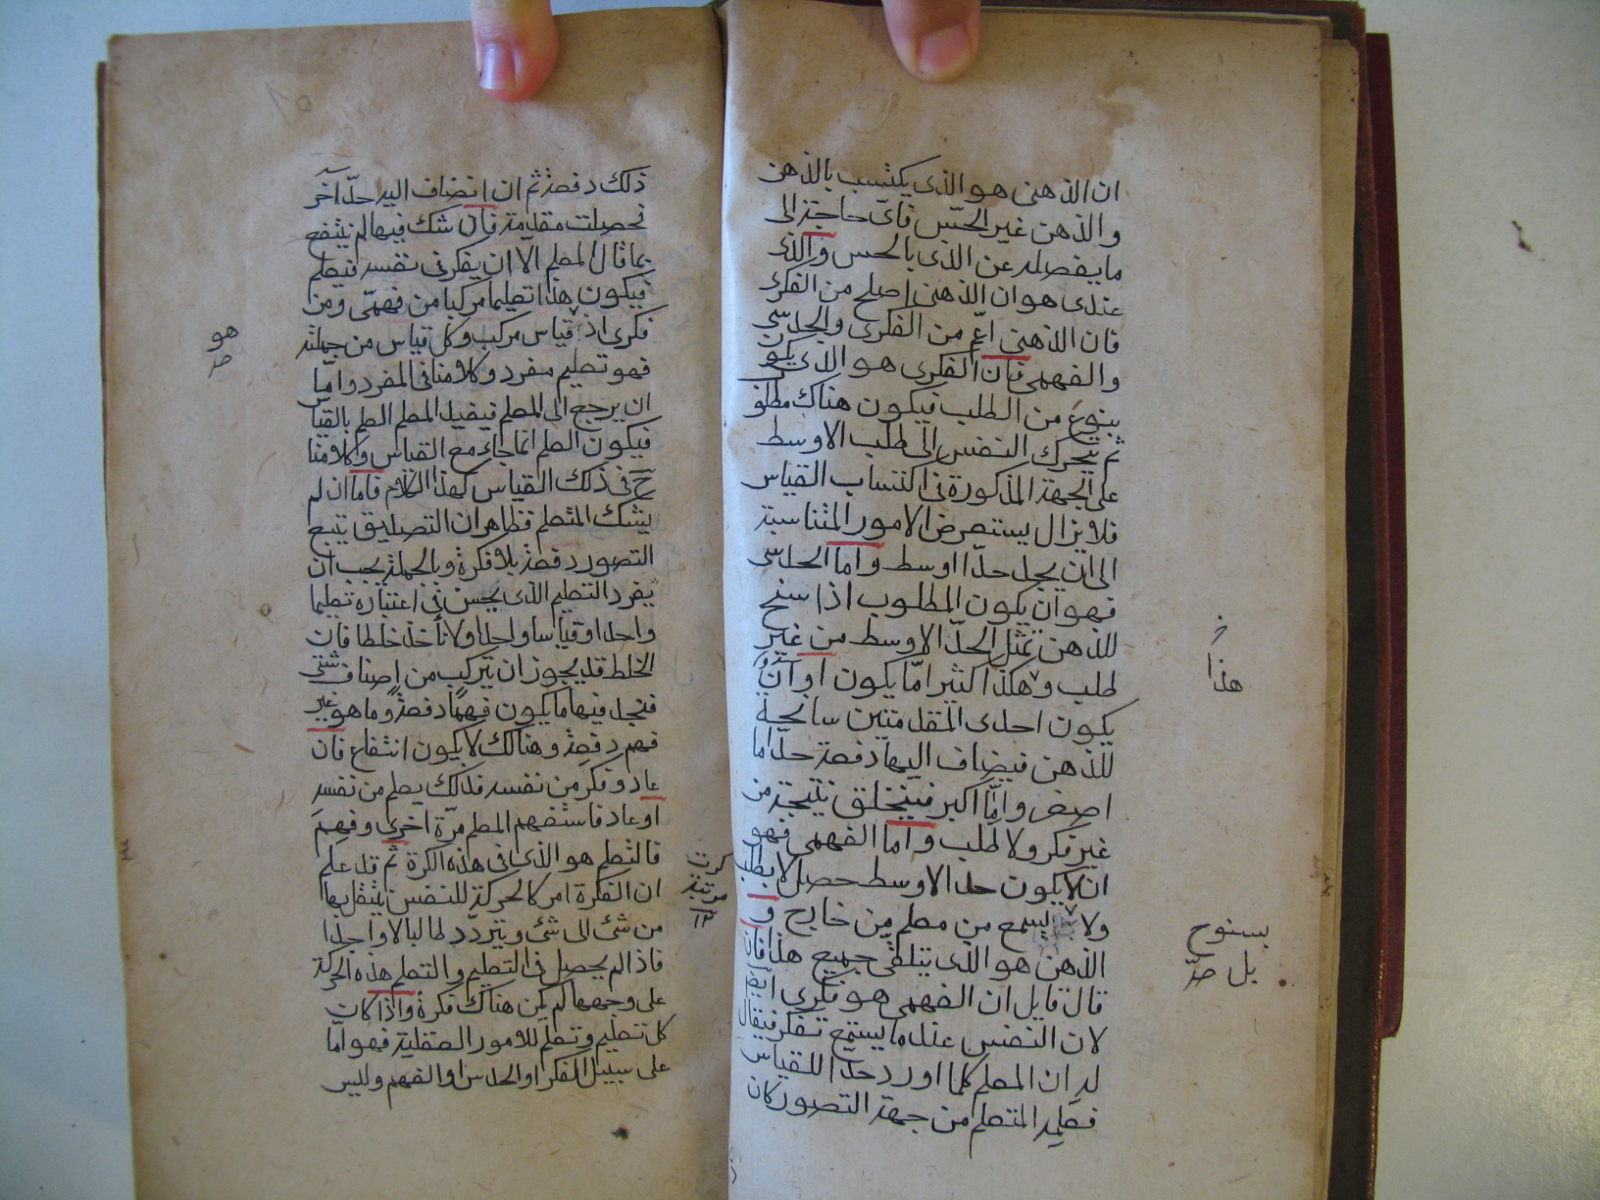 ان الذهنى هو الذى يكتسب بالذهن
والذهن غير الحسّ فاىّ حاجة الى
ما يفصله عن الذى بالحس والذى
عندى هو ان الذهنى اصلح من الفكرى
فان الذهنى اعّم من الفكرى والحدسى
والفهمى فان الفكرى هو الذى يكو
بنوع من الطلب فيكون هناك مطلو
ثم تتحرك النفس الى طلب الاوسط
على الجهة المذكورة فى اكتساب القياس
فلا يزال يستعرض الامور المتناسبة
الى ان يجد حدّا اوسط واما الحدسى
فهو ان يكون المطلوب اذا سنح
للذهن تمثل الحدّ الاوسط من غير
طلب وهكذا كثيرا مّا يكون او انْ
يكون احدى المقدمتين سانحة
للذهن فيضاف اليها دفعة حدّ اما
اصغر وامّا اكبر فيتخلق نتيجة من
غير فكر ولا طلب واما الفهمى فهو
ان لا يكون حد الاوسط حصل لا بطلب
ولا يسمع من معلم من خارج و
الذهن هو الذى يتلقى جميع هذا فان
قال قايل ان الفهمى هو فكرى ايضا
لان النفس عند ما يستمع تفكر فيقال
له ان المعلم كلما اورد حدّا للقياس
فعلمه المتعلم من جهة التصور كان
هذا
بسنوح
بل صح
ذلك دفعة ثم ان انضاف اليه حدّ آخر
تحصلت مقدمة فان شك فيها لم ينتفع
بما قال المعلم الا ان يفكر فى نفسه فيعلم
فيكون هذا تعليما مركبا من فهمّى ومن
فكرى اذ قياس مركب وكل قياس من جملته
فهو تعليم مفرد وكلامنا فى المفرد وامّا
ان يرجع الى المعلم فيفيد المعلم العلم بالقيا
فيكون العلم انما جاء مع القياس وكلامنا
ح فى ذلك القياس كهذا الكلام فاما ان لم
يشك المتعلم فظاهر ان التصديق تتبع
التصور دفعة بلا فكرة وبالجملة يجب ان
يفرد التعليم الذى يحسن فى اعتباره تعليما
واحدا وقياسا واحدا ولا تأخذ خلطا فان
الخلط قد يجوز ان يتركب من اصناف شتى
فتجد فيها ما يكون فهمًا دفعةً وما هو غير
فهم دفعة وهنالك لا يكون انتفاع فان
عاد وفكر من نفسه فذلك يعلم من نفسه
او عاد فاستفهم المعلم مرّة اخرى وفهم
فالتعلم هو الذى فى هذه الكرة ثم قد علم
ان الفكرة امر كالحركة للنفس ينتقل بها
من شئ الى شئ ويتردّد طالبا لا واجدا
فاذا لم يحصل فى التعليم والتعلم هذه الحركة
على وجهها لم يكن هناك فكرة واذا كان
كل تعليم وتعلم للامور العقلية فهو امّا
على سبيل الفكر او الحدس او الفهم وليس
هو
صح
كرت
مرتبة
١٢